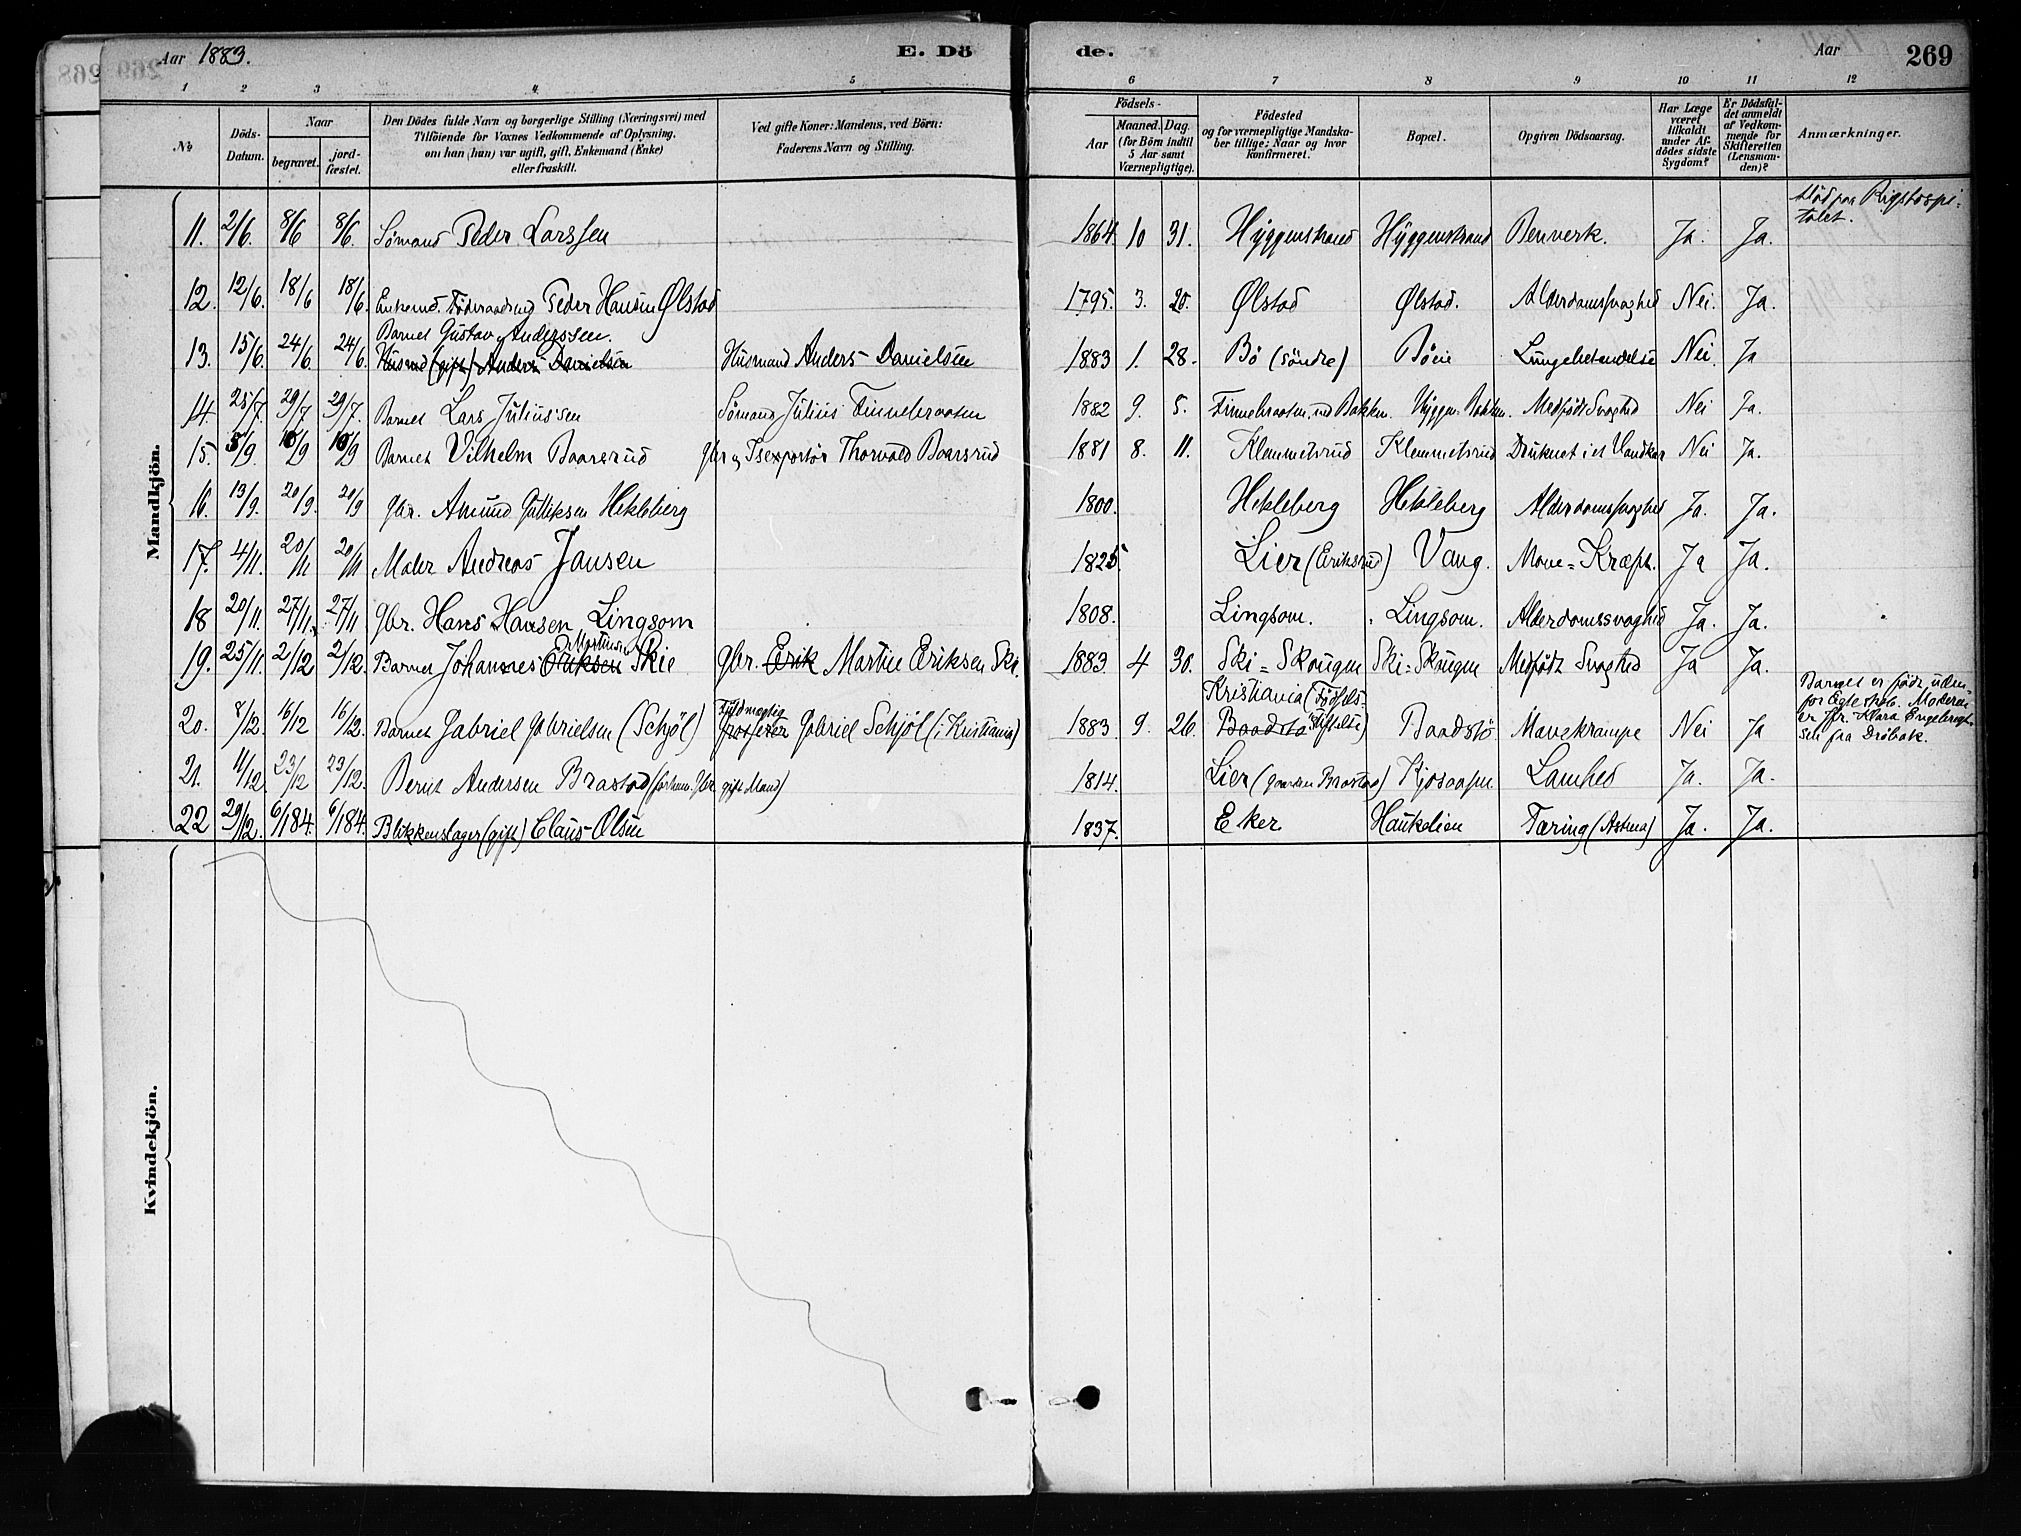 Aar 1883. E. Dö de. Aar 269
1 2 3 4 5 6 7 8 9 10 11 12
No
Döds-Datum.
Naar
begravet. jord-fæstet.
Den Dödes fulde Navn og borgerlige Stilling (Næringsvei) med
Tilföiende for Voxnes Vedkommende af Oplysning,
om han (hun) var ugift, gift, Enkemand (Enke)
eller fraskilt.
Ved gifte Koner: Mandens, ved Börn:
Faderens Navn og Stilling.
Födsels-
Aar Maaned. Dag.
(for Börn indtil
5 Aar samt
Værnepligtige).
Födested
og for værnepligtige Mandska-
ber tillige: Naar og hvor
konfirmeret.
Bopæl.
Opgiven Dödsaarsag.
Har Læge
været
tilkaldt
under Af-
dödes sidste
Sygdom?
Er Dödsfal-
det anmeldt
af Vedkom-
mende for
Skifteretten
(Lensman-
den)?
Anmærkninger.
Mandkjön.
Död paa Rigshospi-
talet.
11. 2/6. 8/6 8/6. Sömand Peder Larssen 1864 10 31. Hyggenstrand Hyggenstrand Benverk. Ja. Ja.
12. 12/6. 18/6 18/6. Enkemd. Föderaadsmd Peder Hansen Ølstad 1795. 3. 20. Ølstad Ølstad. Alderdomssvaghed Nei. Ja.
Barnet Gustav Anderssen.
13. 15/6. 24/6. 24/6. Husmd (gift) Anders Danielsen Husmand Anders Danielsen 1883 1. 28. Bö (söndre) Böen Lungebetændelse Nei. Ja
14. 25/7. 29/7 29/7. Barnet Lars Juliussen Sömand Julius Finnebraaten 1882 9. 5. Finnebraaten, ved Bakken. Hyggen Bakken. Medfödt Svaghed Nei Ja.
15. 5/9. 10/9 10/9 Barnet Vilhelm Baarsrud Gbr og Isexportör Thorvald Baarsrud 1881 8. 11. Klemmetsrud Klemmetsrud Druknet i et Vandkar Nei Ja.
16. 13/9. 20/9. 20/9 Gbr. Amund Gulliksen Hekleberg 1800. Hekleberg Hekleberg Alderdomssvaghed Ja. Ja.
17. 4/11. 20/11 20/11 Maler Andreas Jansen 1825 Lier (Eriksrud) Vang. Mave-Kræft. Ja Ja.
18 20/11. 27/11. 27/11 Gbr. Hans Hansen Lingsom 1808. Lingsom. Lingsom. Alderdomssvaghed Ja. Ja.
Martinsen
19. 25/11. 2/12 2/12. Barnet Johannes Eriksen Skie Gbr. Erik Martin Eriksen Ski. 1883 4 30. Ski-Skougen Ski-Skougen Medfödt Svaghed Ja Ja.
Fuldmægtig Kristiania (Födsels-
stiftelse)
20. 8/12. 16/12 16/12. Barnet Gabriel Gabrielsen (Schjöl) Gabriel Schjöl (i Kristiania) 1883 9. 26. Baadstö Baadstö Mavekrampe Nei Ja
Barnet er födt uden-
for Egteskab. Moderen
er Fr. Klara Engebregt-
sen fra Dröbak.
21. 11/12. 23/12 23/12. Bernt Andersen Brastad (forhen. Gbr. gift Mand) 1814. Lier (gaarden Brastad) Kjosaasen Lamhed Ja. Ja.
22 29/12. 6/1 84. 6/1 84. Blikkenslager (gift) Claus Olsen 1837. Eker Haukelien Tæring (Asthma) Ja. Ja.
Kvindekjön.